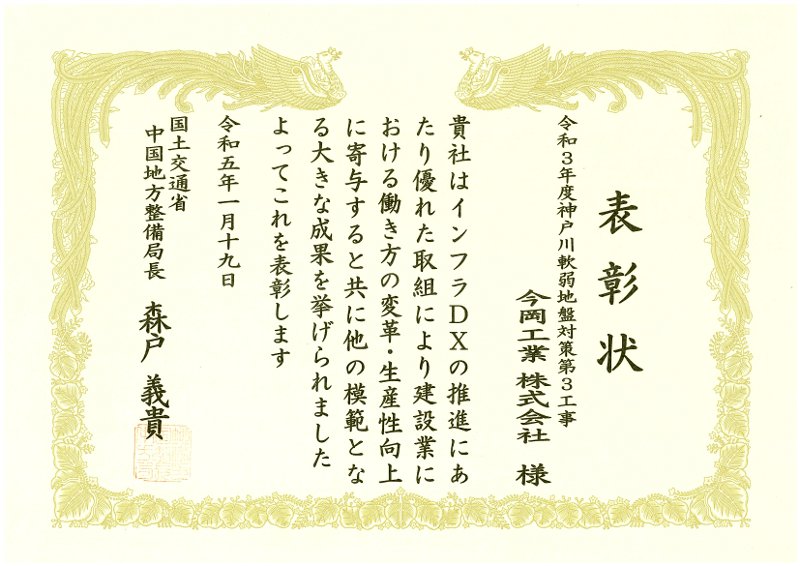 表彰状
令和3年度神戸川軟弱地盤対策第3工事
今岡工業 株式会社 様
貴社はインフラDXの推進にあ
たり優れた取組により建設業に
おける働き方の変革・生産性向上
に寄与すると共に他の模範とな
る大きな成果を挙げられました
よってこれを表彰します
令和五年一月十九日
国土交通省
中国地方整備局長 森戸 義貴